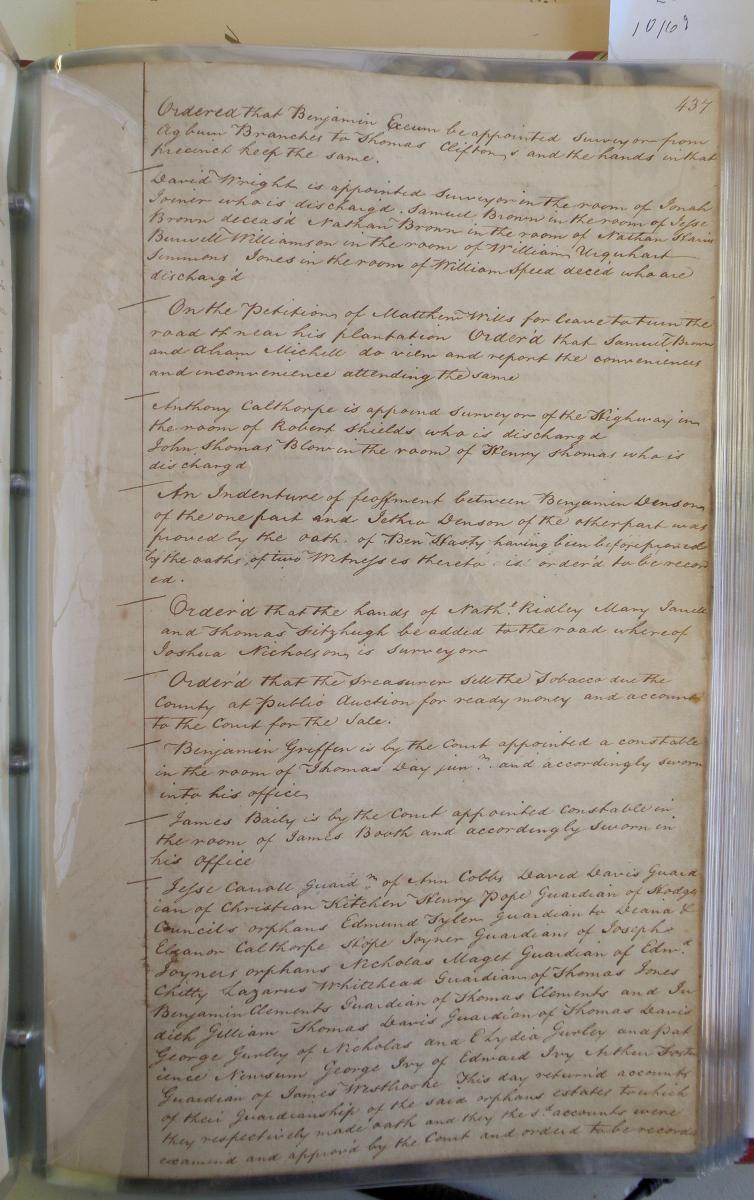 10/69
437
Ordered that Benjamin Exum be appointed Surveyor from
Agbum Branches to Thomas Cliftons and the hands in that
precinct keep the same.
David Wright is appointed Surveyor in the room of Jonah
Joiner who is discharg'd. Samuel Brown in the room of Jesse
Brown deceas'd Nathan Brown in the room of Nathan
Burwell Williamson in the room of William Urquhart
Simmons Jones in the room of William Speed deced who are
discharg'd
On the Petition of Matthew Wills for leave to turn the
road near his plantation Order'd that Samuel Brown
and Abram Michell do view and report the conveniences
and inconvenience attending the same
Anthony Calthorpe is appoind Surveyor of the Highway in
the room of Robert Shields who is discharg'd
John Thomas Blow in the room of Henry Thomas who is
discharg'd
An Indenture of feoffment between Benjamin Denson
of the one part and Jethro Denson of the other part was
proved by the oath of Ben Hasty having been before proved
by the oaths of two Witnesses thereto is order'd to be record
ed.
Order'd that the hands of Nath.l Ridley Mary
and Thomas Fitzhugh be added to the road whereof
Joshua Nicholson is Surveyor
Order'd that the Treasurer sell the Tobacco due the
County at Public Auction for ready money and account
to the Court for the Sale.
Benjamin Griffen is by the Court appointed a constable
in the room of Thomas Day jun.r and accordingly sworn
into his office
James Baily is by the Court appointed Constable in
the room of James Booth and accordingly sworn in
his office
Jesse Carroll Guard.n of Ann Cobbs David Davis Guard
ian of Christian Kitchen Henry Pope Guardian of Hodges
Council's orphans Edmund Tyler Guardian to Diana &
Eleanor Calthorpe Hope Joyner Guardian of Joseph
Joyners orphans Nicholas Maget Guardian of Edw.d
Chitty Lazarus Whitehead Guardian of Thomas Jones
Benjamin Clements Guardian of Thomas Clements and Ju
dich Gilliam Thomas Davis Guardian of Thomas Davis
George Gurley of Nicholas and Elydia Gurley and pat
ience Newsum George Ivy of Edward Ivy Arthur
Guardian of James Westbrooke This day return'd accounts
of their Guardianship of the said orphans estates to which
they respectively made oath and they the s.d accounts were
examin'd and approv'd by the Court and order'd to be recorded